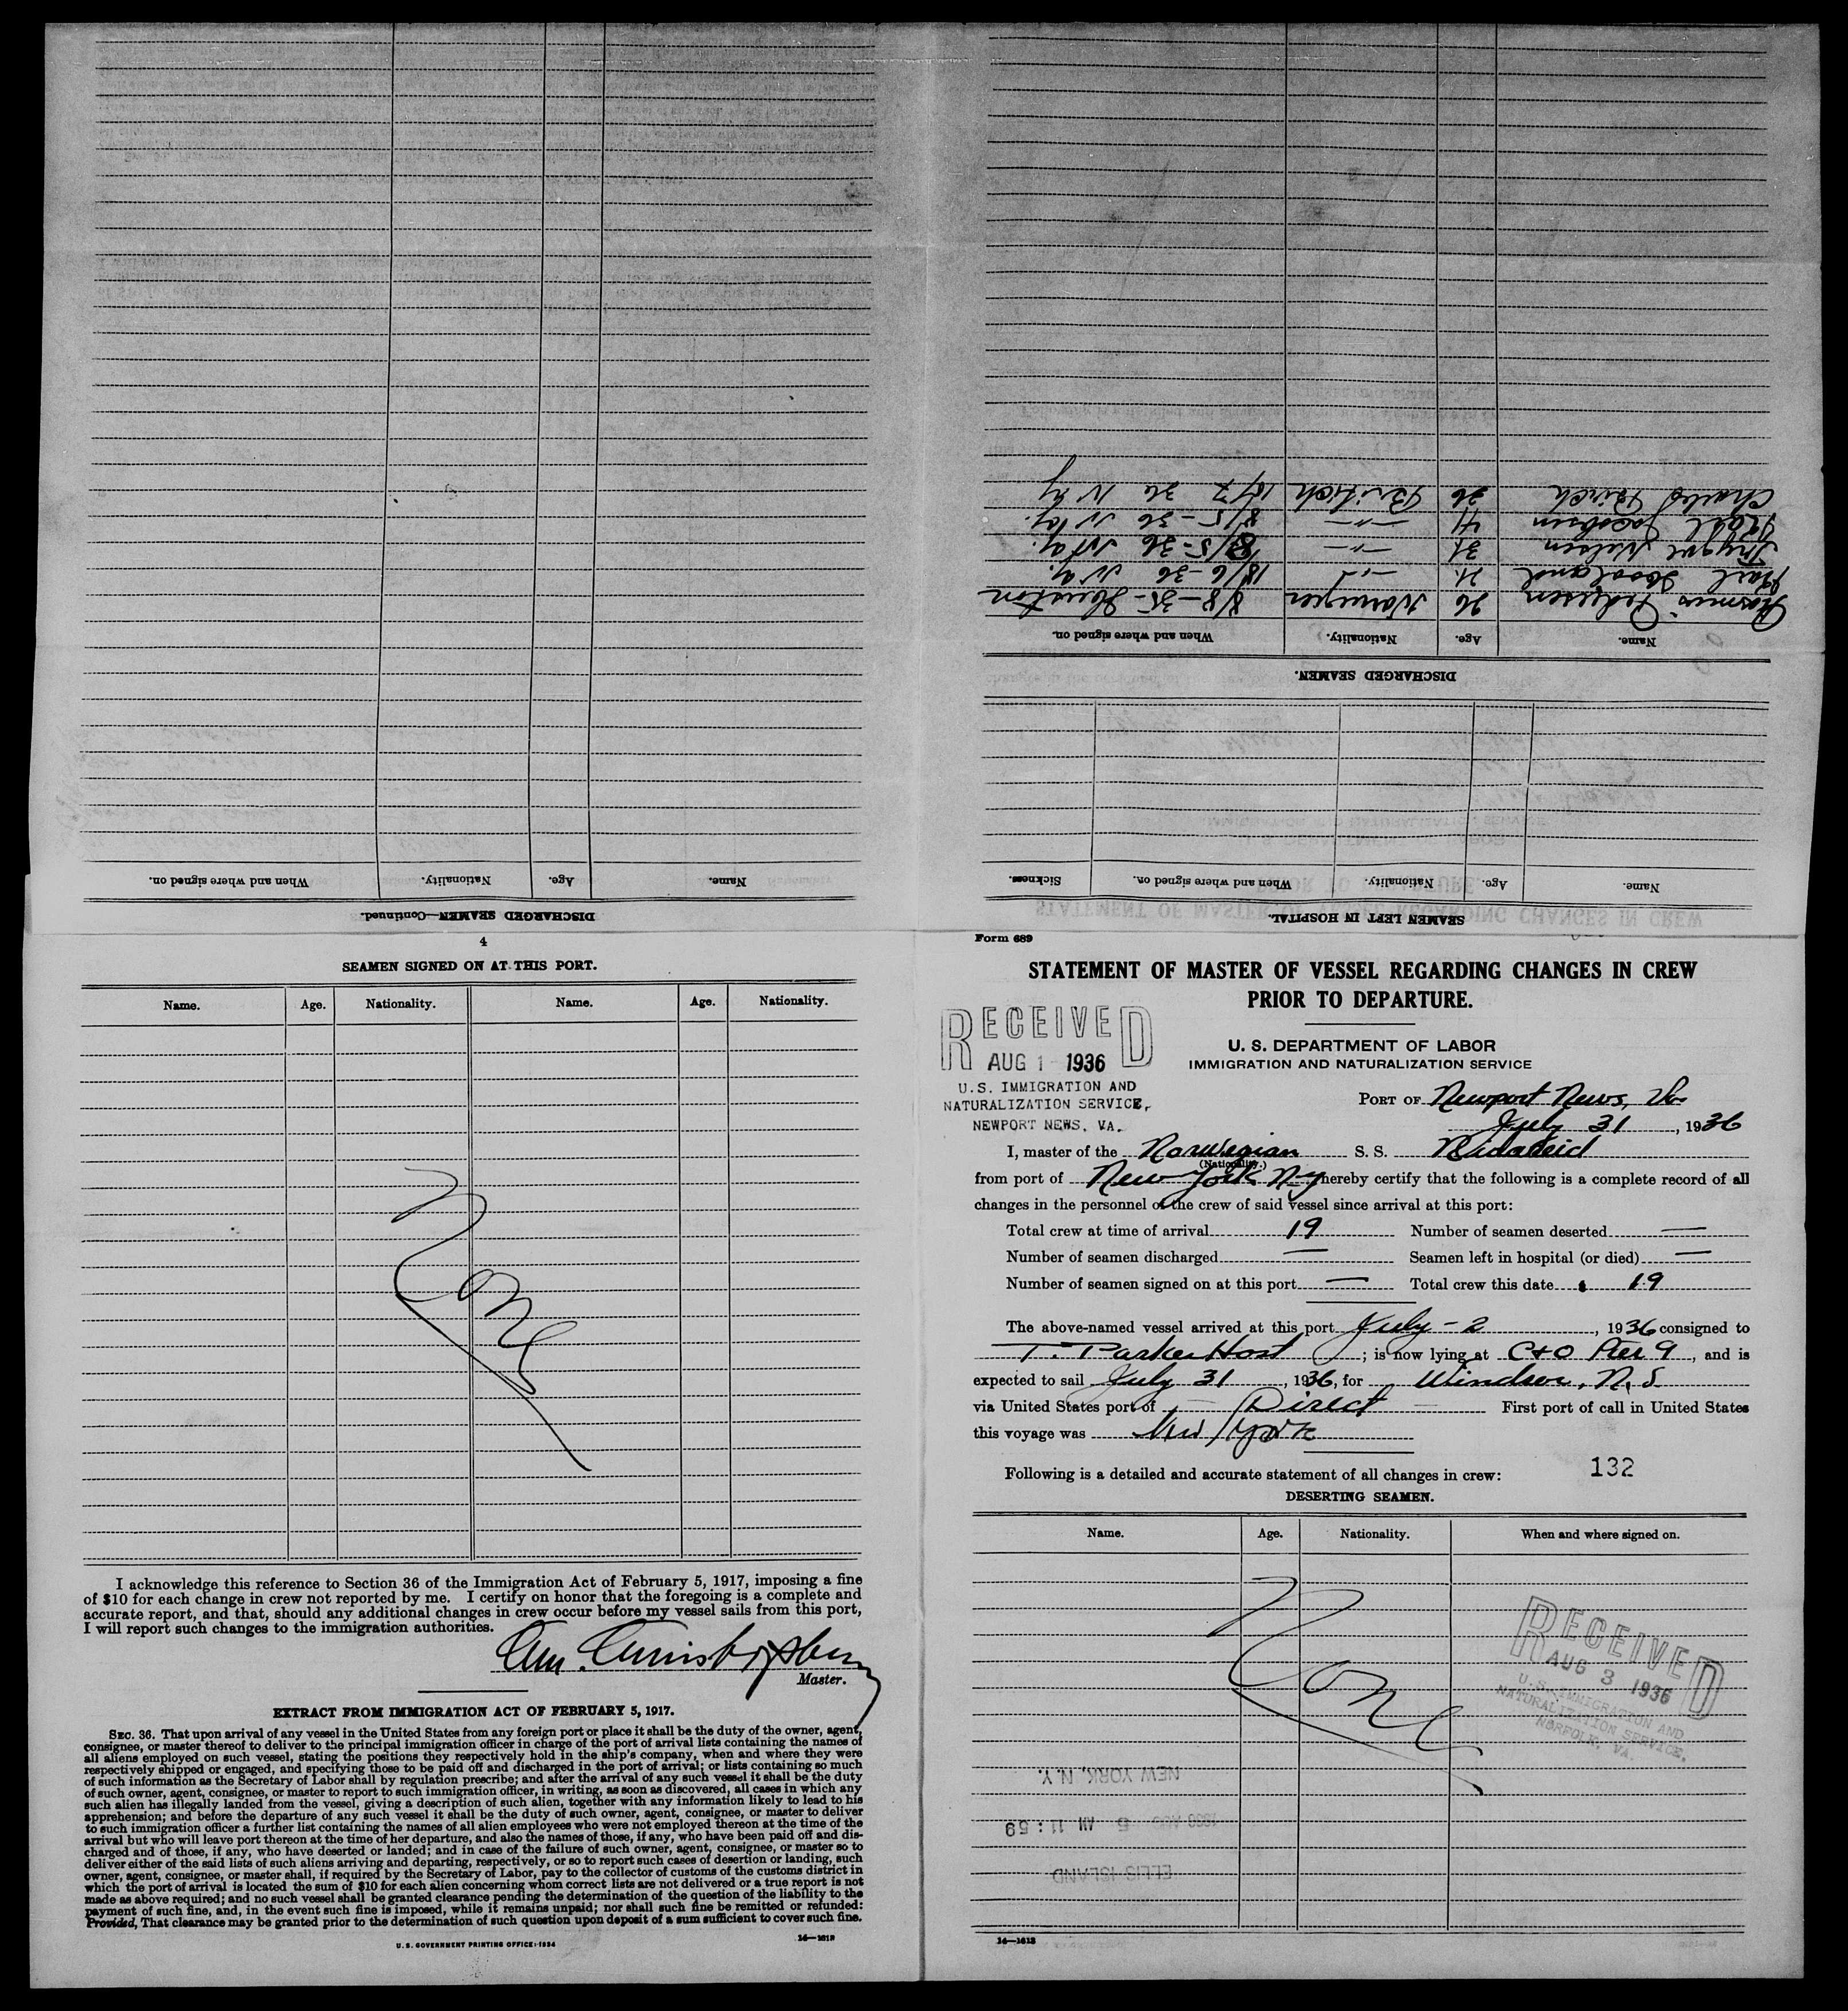 Form 689
STATEMENT OF MASTER OF VESSEL REGARDING CHANGES IN CREW
PRIOR TO DEPARTURE.
RECEIVED
AUG 1 1936
U.S. IMMIGRATION AND
NATURALIZATION SERVICE,
NEWPORT NEWS, VA.
U. S. DEPARTMENT OF LABOR
IMMIGRATION AND NATURALIZATION SERVICE
PORT OF Newport News, Va
July 31, 1936
I, master of the Norwegian S. S. Nidareid
(Nationality.)
from port of New York N-y hereby certify that the following is a complete record of all
changes in the personnel of the crew of said vessel since arrival at this port:
Total crew at time of arrival 19 Number of seamen deserted —
Number of seamen discharged — Seamen left in hospital (or died) —
Number of seamen signed on at this port — Total crew this date 19
The above-named vessel arrived at this port July - 2, 1936 consigned to
T. Parker Host; is now lying at C+O Pier 9, and is
expected to sail July 31, 1936, for Windsor, N.S.
via United States port of Direct First port of call in United States
this voyage was New York
Following is a detailed and accurate statement of all changes in crew:
132
DESERTING SEAMEN.
Name. Age. Nationality. When and where signed on.
None
RECEIVED
AUG 3 1936
U.S. IMMIGRATION AND
NATURALIZATION SERVICE,
NORFOLK, VA.
ELLIS ISLAND
1936 AUG 5 AM 11:59
NEW YORK, N.Y.
16—1613
SEAMEN LEFT IN HOSPITAL.
Name. Age. Nationality. When and where signed on. Sickness.
DISCHARGED SEAMEN.
Name. Age. Nationality. When and where signed on.
Rasmus Pedersen 26 Norwegian 8/8-35- Houston
Karl Hooland 21 -"- 18/6-36 N.Y.
Trygve Nielsen 31 -"- 8/5-36
Karl Jacobsen 41 -"- 8/5-36
Charles Birch 26 British 10/7 36 N Y
DISCHARGED SEAMEN—Continued.
Name. Age. Nationality. When and where signed on.
4
SEAMEN SIGNED ON AT THIS PORT.
Name. Age. Nationality. Name. Age. Nationality.
None
I acknowledge this reference to Section 36 of the Immigration Act of February 5, 1917, imposing a fine
of $10 for each change in crew not reported by me. I certify on honor that the foregoing is a complete and
accurate report, and that, should any additional changes in crew occur before my vessel sails from this port,
I will report such changes to the immigration authorities.
Master.
EXTRACT FROM IMMIGRATION ACT OF FEBRUARY 5, 1917.
SEC. 36. That upon arrival of any vessel in the United States from any foreign port or place it shall be the duty of the owner, agent,
consignee, or master thereof to deliver to the principal immigration officer in charge of the port of arrival lists containing the names of
all aliens employed on such vessel, stating the positions they respectively hold in the ship's company, when and where they were
respectively shipped or engaged, and specifying those to be paid off and discharged in the port of arrival; or lists containing so much
of such information as the Secretary of Labor shall by regulation prescribe; and after the arrival of any such vessel it shall be the duty
of such owner, agent, consignee, or master to report to such immigration officer, in writing, as soon as discovered, all cases in which any
such alien has illegally landed from the vessel, giving a description of such alien, together with any information likely to lead to his
apprehension; and before the departure of any such vessel it shall be the duty of such owner, agent, consignee, or master to deliver
to such immigration officer a further list containing the names of all alien employees who were not employed thereon at the time of the
arrival but who will leave port thereon at the time of her departure, and also the names of those, if any, who have been paid off and dis-
charged and of those, if any, who have deserted or landed; and in case of the failure of such owner, agent, consignee, or master so to
deliver either of the said lists of such aliens arriving and departing, respectively, or so to report such cases of desertion or landing, such
owner, agent, consignee, or master shall, if required by the Secretary of Labor, pay to the collector of customs of the customs district in
which the port of arrival is located the sum of $10 for each alien concerning whom correct lists are not delivered or a true report is not
made as above required; and no such vessel shall be granted clearance pending the determination of the question of the liability to the
payment of such fine, and, in the event such fine is imposed, while it remains unpaid; nor shall such fine be remitted or refunded:
Provided, That clearance may be granted prior to the determination of such question upon deposit of a sum sufficient to cover such fine.
U. S. GOVERNMENT PRINTING OFFICE: 1934
16—1613